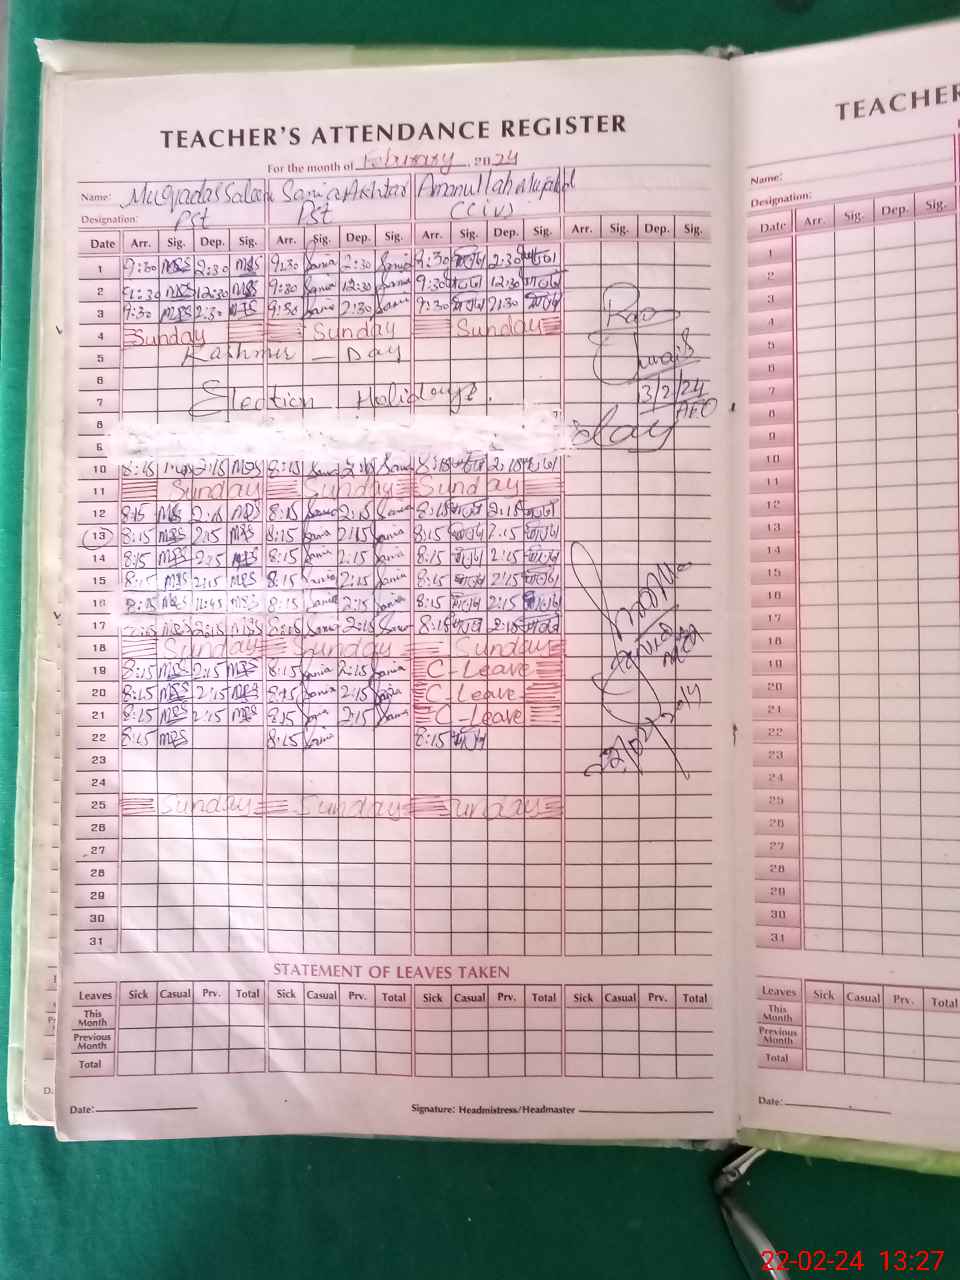 TEACHER'S ATTENDANCE REGISTER
For the month of February, 2024
Name: Sania Akhtar Amanullah
Designation: Pst Pst
Date Arr. Sig. Dep. Sig. Arr. Sig. Dep. Sig. Arr. Sig. Dep. Sig. Arr. Sig. Dep. Sig.
1 9:30 MSS 2:30 MSS 9:30 Sania 2:30 Sania 9:30 2:30
2 9:30 MSS 12:30 MSS 9:30 Sania 12:30 Sania 9:30 12:30
3 9:30 MSS 2:30 MSS 9:30 Sania 2:30 Sania 9:30 2:30
4 Sunday Sunday Sunday
5 Kashmir - Day
6
7 Election Holidays.
8
9
10 8:15 2:15 MSS 8:15 Sania 2:15 Sania 8:15 2:15
11 Sunday Sunday Sunday
12 8:15 MSS 2:15 MSS 8:15 Sania 2:15 Sania 8:15 2:15
13 8:15 MSS 2:15 MSS 8:15 Sania 2:15 Sania 8:15 2:15
14 8:15 MSS 2:15 MSS 8:15 Sania 2:15 Sania 8:15 2:15
15 8:15 MSS 2:15 MSS 8:15 Sania 2:15 Sania 8:15 2:15
16 8:15 MSS 11:45 MSS 8:15 Sania 2:15 Sania 8:15 2:15
17 8:15 MSS 2:15 MSS 8:15 Sania 2:15 Sania 8:15 2:15
18 Sunday Sunday Sunday
19 8:15 MSS 2:15 MSS 8:15 Sania 2:15 Sania C-Leave
20 8:15 MSS 2:15 MSS 8:15 Sania 2:15 Sania C-Leave
21 8:15 MSS 2:15 MSS 8:15 Sania 2:15 Sania C-Leave
22 8:15 MSS 8:15 Sania 8:15
23
24
25 Sunday Sunday Sunday
26
27
28
29
30
31
Rao
13/2/24
AEO
STATEMENT OF LEAVES TAKEN
Leaves Sick Casual Prv. Total Sick Casual Prv. Total Sick Casual Prv. Total Sick Casual Prv. Total
This Month
Previous Month
Total
Date: Signature: Headmistress/Headmaster
TEACHER
Name:
Designation:
Date Arr. Sig. Dep. Sig.
1
2
3
4
5
6
7
8
9
10
11
12
13
14
15
16
17
18
19
20
21
22
23
24
25
26
27
28
29
30
31
Leaves Sick Casual Prv. Total
This Month
Previous Month
Total
Date:
22-02-24 13:27